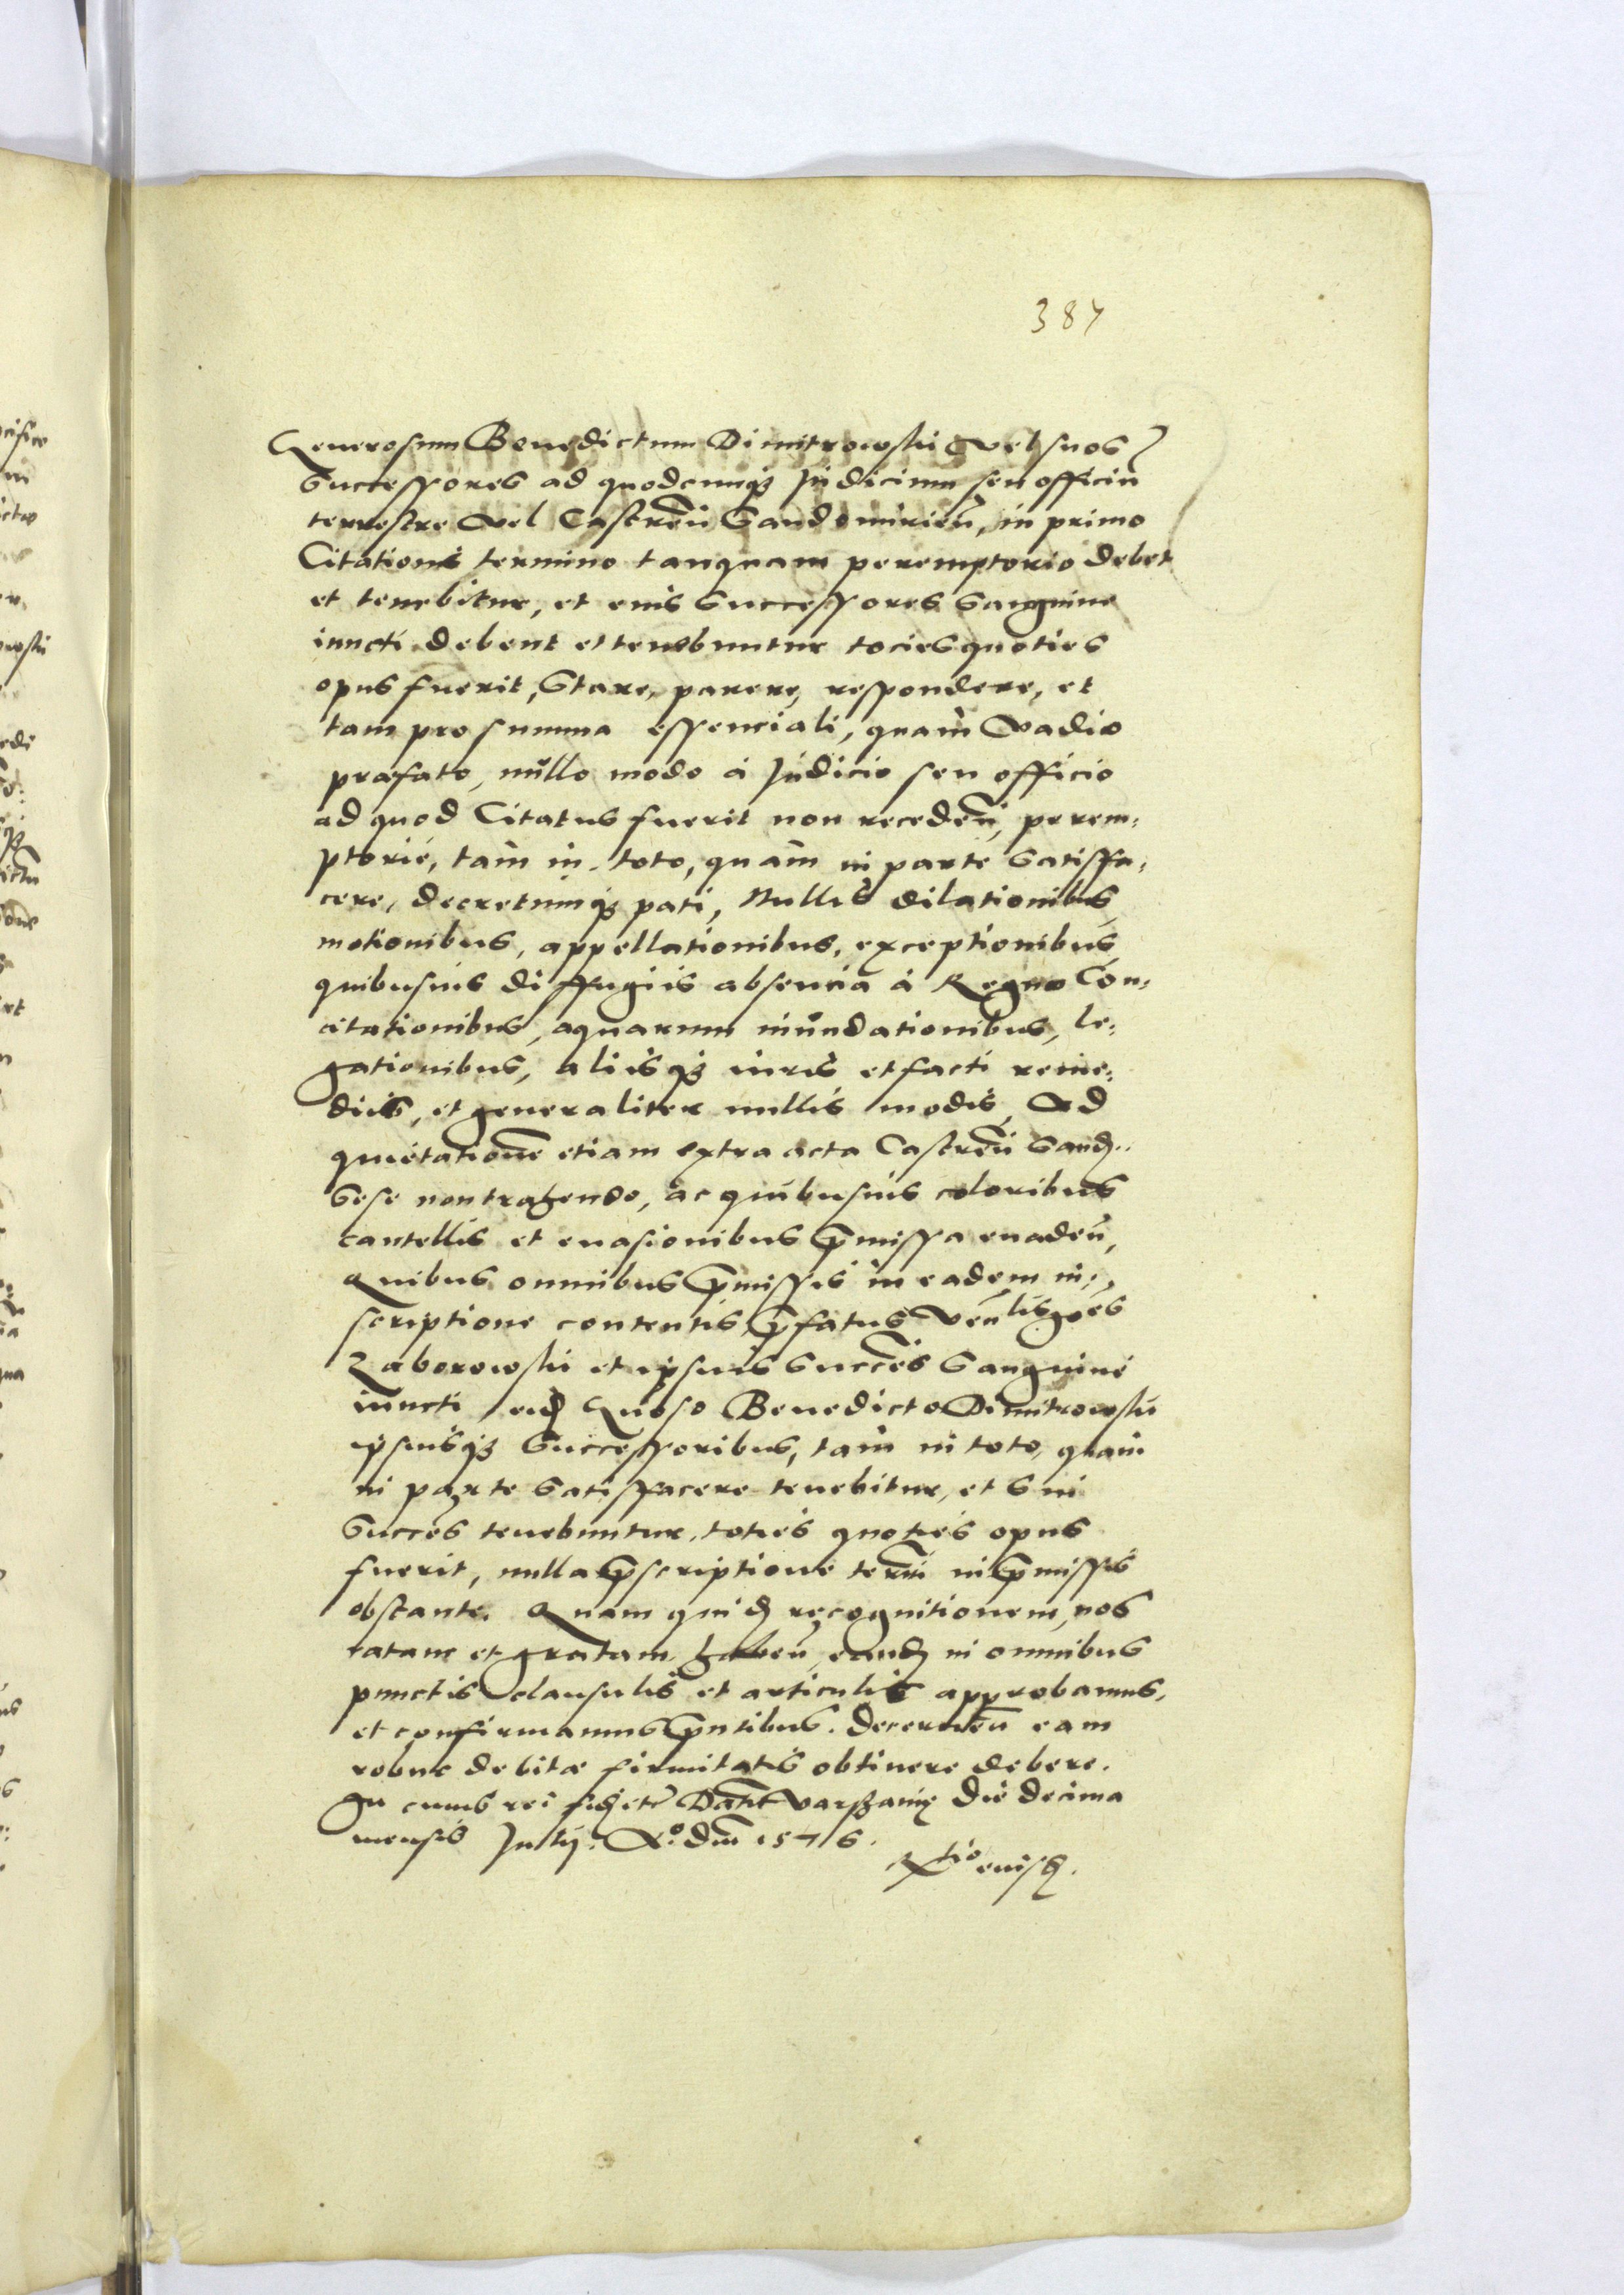 387
Generosum Benedictum Dimitrowski vel suos
Successores ad quodcunqȝ Judicium seu officiu
terrestre vel Castreñ Sandomirieñ, in primo
Citationis termino tanquam peremptorio debet
et tenebitur, et eius Successores Sanguine
iuncti debent et tenebuntur tociesquoties
opus fuerit, Stare, parere, respondere, et
tam pro summa essenciali, quam Vadio
præfato, nullo modo à Judicio seu officio
ad quod Citatus fuerit non recedeñ, perem,
ptorie, tam in toto, quam in parte Satisfa,
cere, decretumqȝ pati, Nullis dilationibus
motionibus, appellationibus, exceptionibus
quibusuis diffugiis absencia à Regno Con,
citationibus, aquarum inundationibus, le,
gationibus, aliisqȝ iuris et facti reme,
diis, et generaliter nullis modis, Ad
quietatione etiam extra acta Castreñ Sand.
Sese non trahendo, ac quibusuis coloribus
cautellis et euasionibus p̄missa euadeñ,
Quibus omnibus p̄missis in eadem in,
scriptione contentis, p̄fatus Veñlis
Zaborowski et ipsius Succes Sanguine
iuncti eid Gnoso Benedicto Dimitrowski
ipsiusqȝ Successoribus, tam in toto, quam
in parte Satisfacere tenebitur, et Sui
Succes tenebuntur, toties quoties opus
fuerit, nulla p̄scriptione terrñ in p̄missis
obstante. Quam quid recognitionem, nos
ratam et gratam habeñ, eand in omnibus
punctis clausulis et articulis approbamus,
et confirmamus p̄ntibus. Decerneñ eam
robur debitæ firmitatis obtinere debere.
In cuius rei fid etc Dat Varszauię die decima
mensis Julij. Ao. dm̄ 1576.